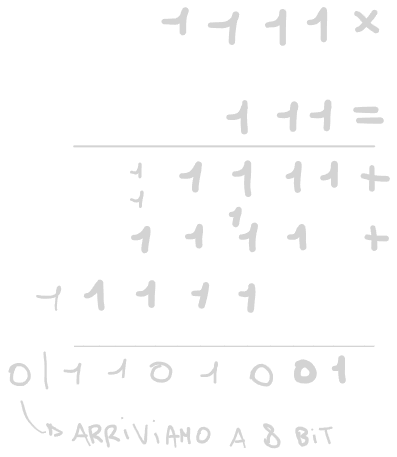 1 1 1 1 ×
1 1 1 =
1
1 1 1 1 +
1
1
1 1 1 1 +
1 1 1 1 1
0 | 1 1 0 1 0 0 1
ARRIVIAMO A 8 BIT